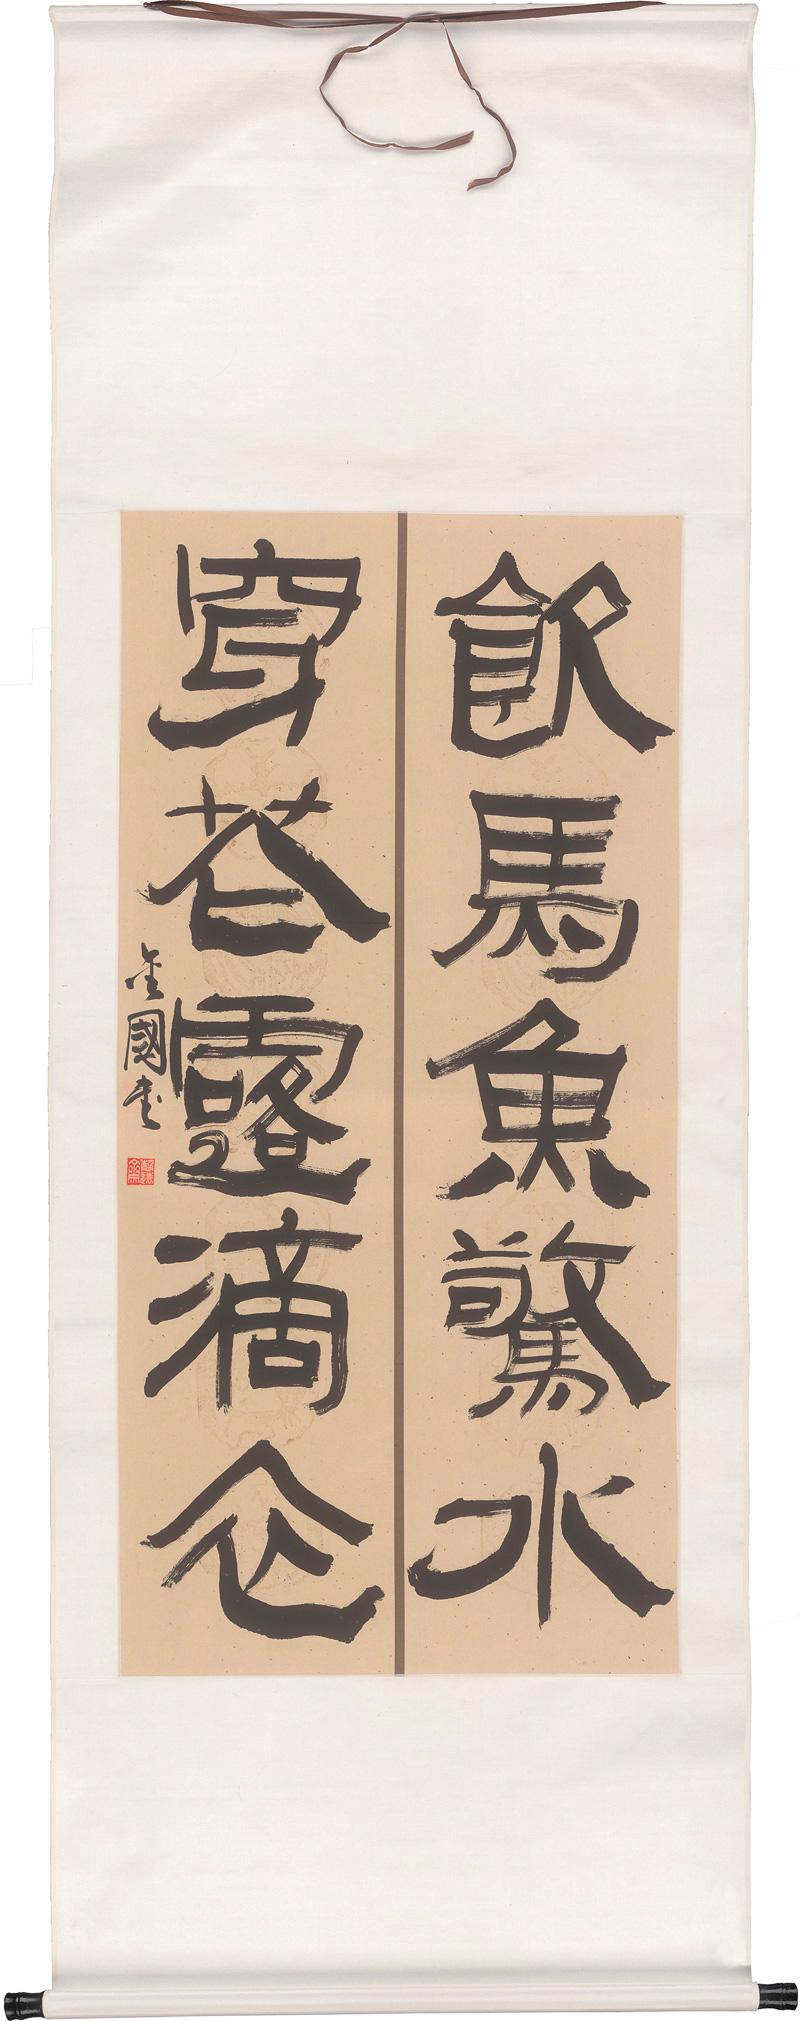 飲馬魚驚水
穿花露滴衣
金國書